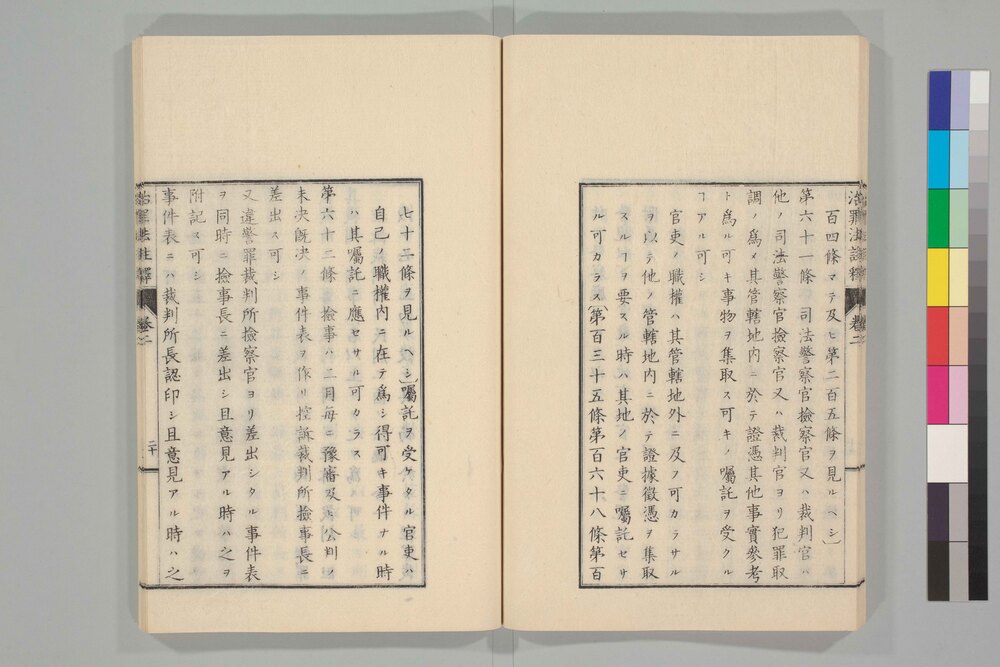 治罪法註釋 卷二
百四條マテ及ヒ第二百五條ヲ見ルヘシ〕
第六十一條 司法警察官檢察官又ハ裁判官ハ
他ノ司法警察官檢察官又ハ裁判官ヨリ犯罪取
調ノ爲メ其管轄地内ニ於テ證憑其他事實參考
ト爲ル可キ事物ヲ集取ス可キノ囑託ヲ受クル
ヿアル可シ
官吏ノ職權ハ其管轄地外ニ及フ可カラサル
ヲ以テ他ノ管轄地内ニ於テ證據徵憑ヲ集取
スルヿヲ要スル時ハ其地ノ官吏ニ囑託セサ
ル可カラス〔第百三十五條第百六十八條第百
七十二條ヲ見ルヘシ〕囑託ヲ受ケタル官吏ハ
自己ノ職權内ニ在テ爲シ得可キ事件ナル時
ハ其囑託ニ應セサル可カラス
第六十二條 檢事ハ二月每ニ豫審及ヒ公判ノ
未決既決ノ事件表ヲ作リ控訴裁判所檢事長ニ
差出ス可シ
又違警罪裁判所檢察官ヨリ差出シタル事件表
ヲ同時ニ檢事長ニ差出シ且意見アル時ハ之ヲ
附記ス可シ
事件表ニハ裁判所長認印シ且意見アル時ハ之
治罪法註釋 卷二 二十